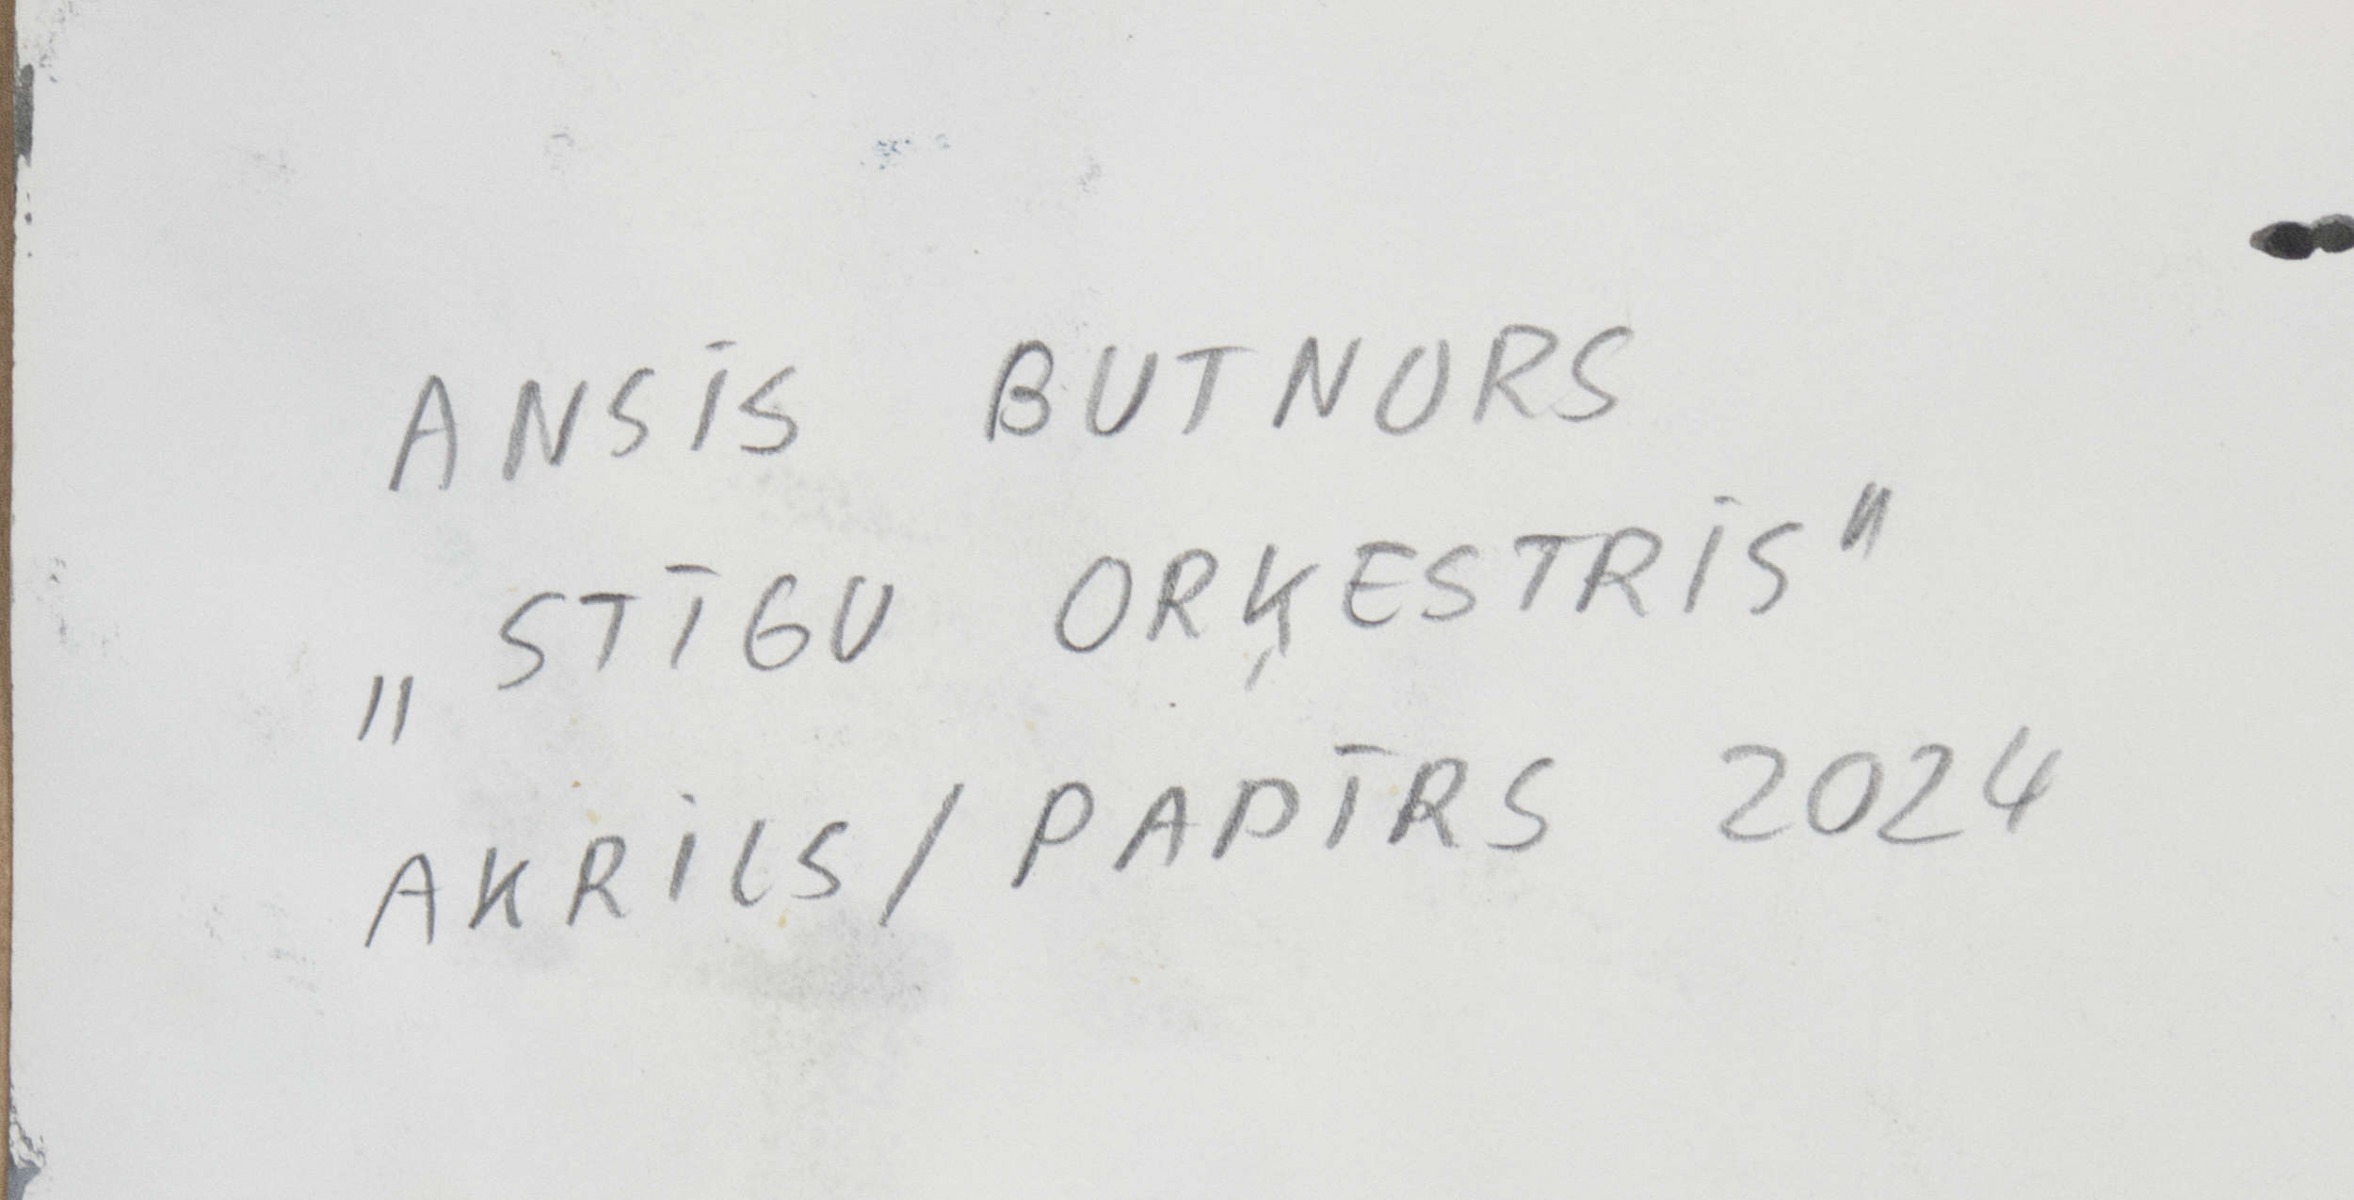 ANSIS BUTNORS
„STĪGU ORĶESTRIS"
AKRILS/PAPĪRS 2024